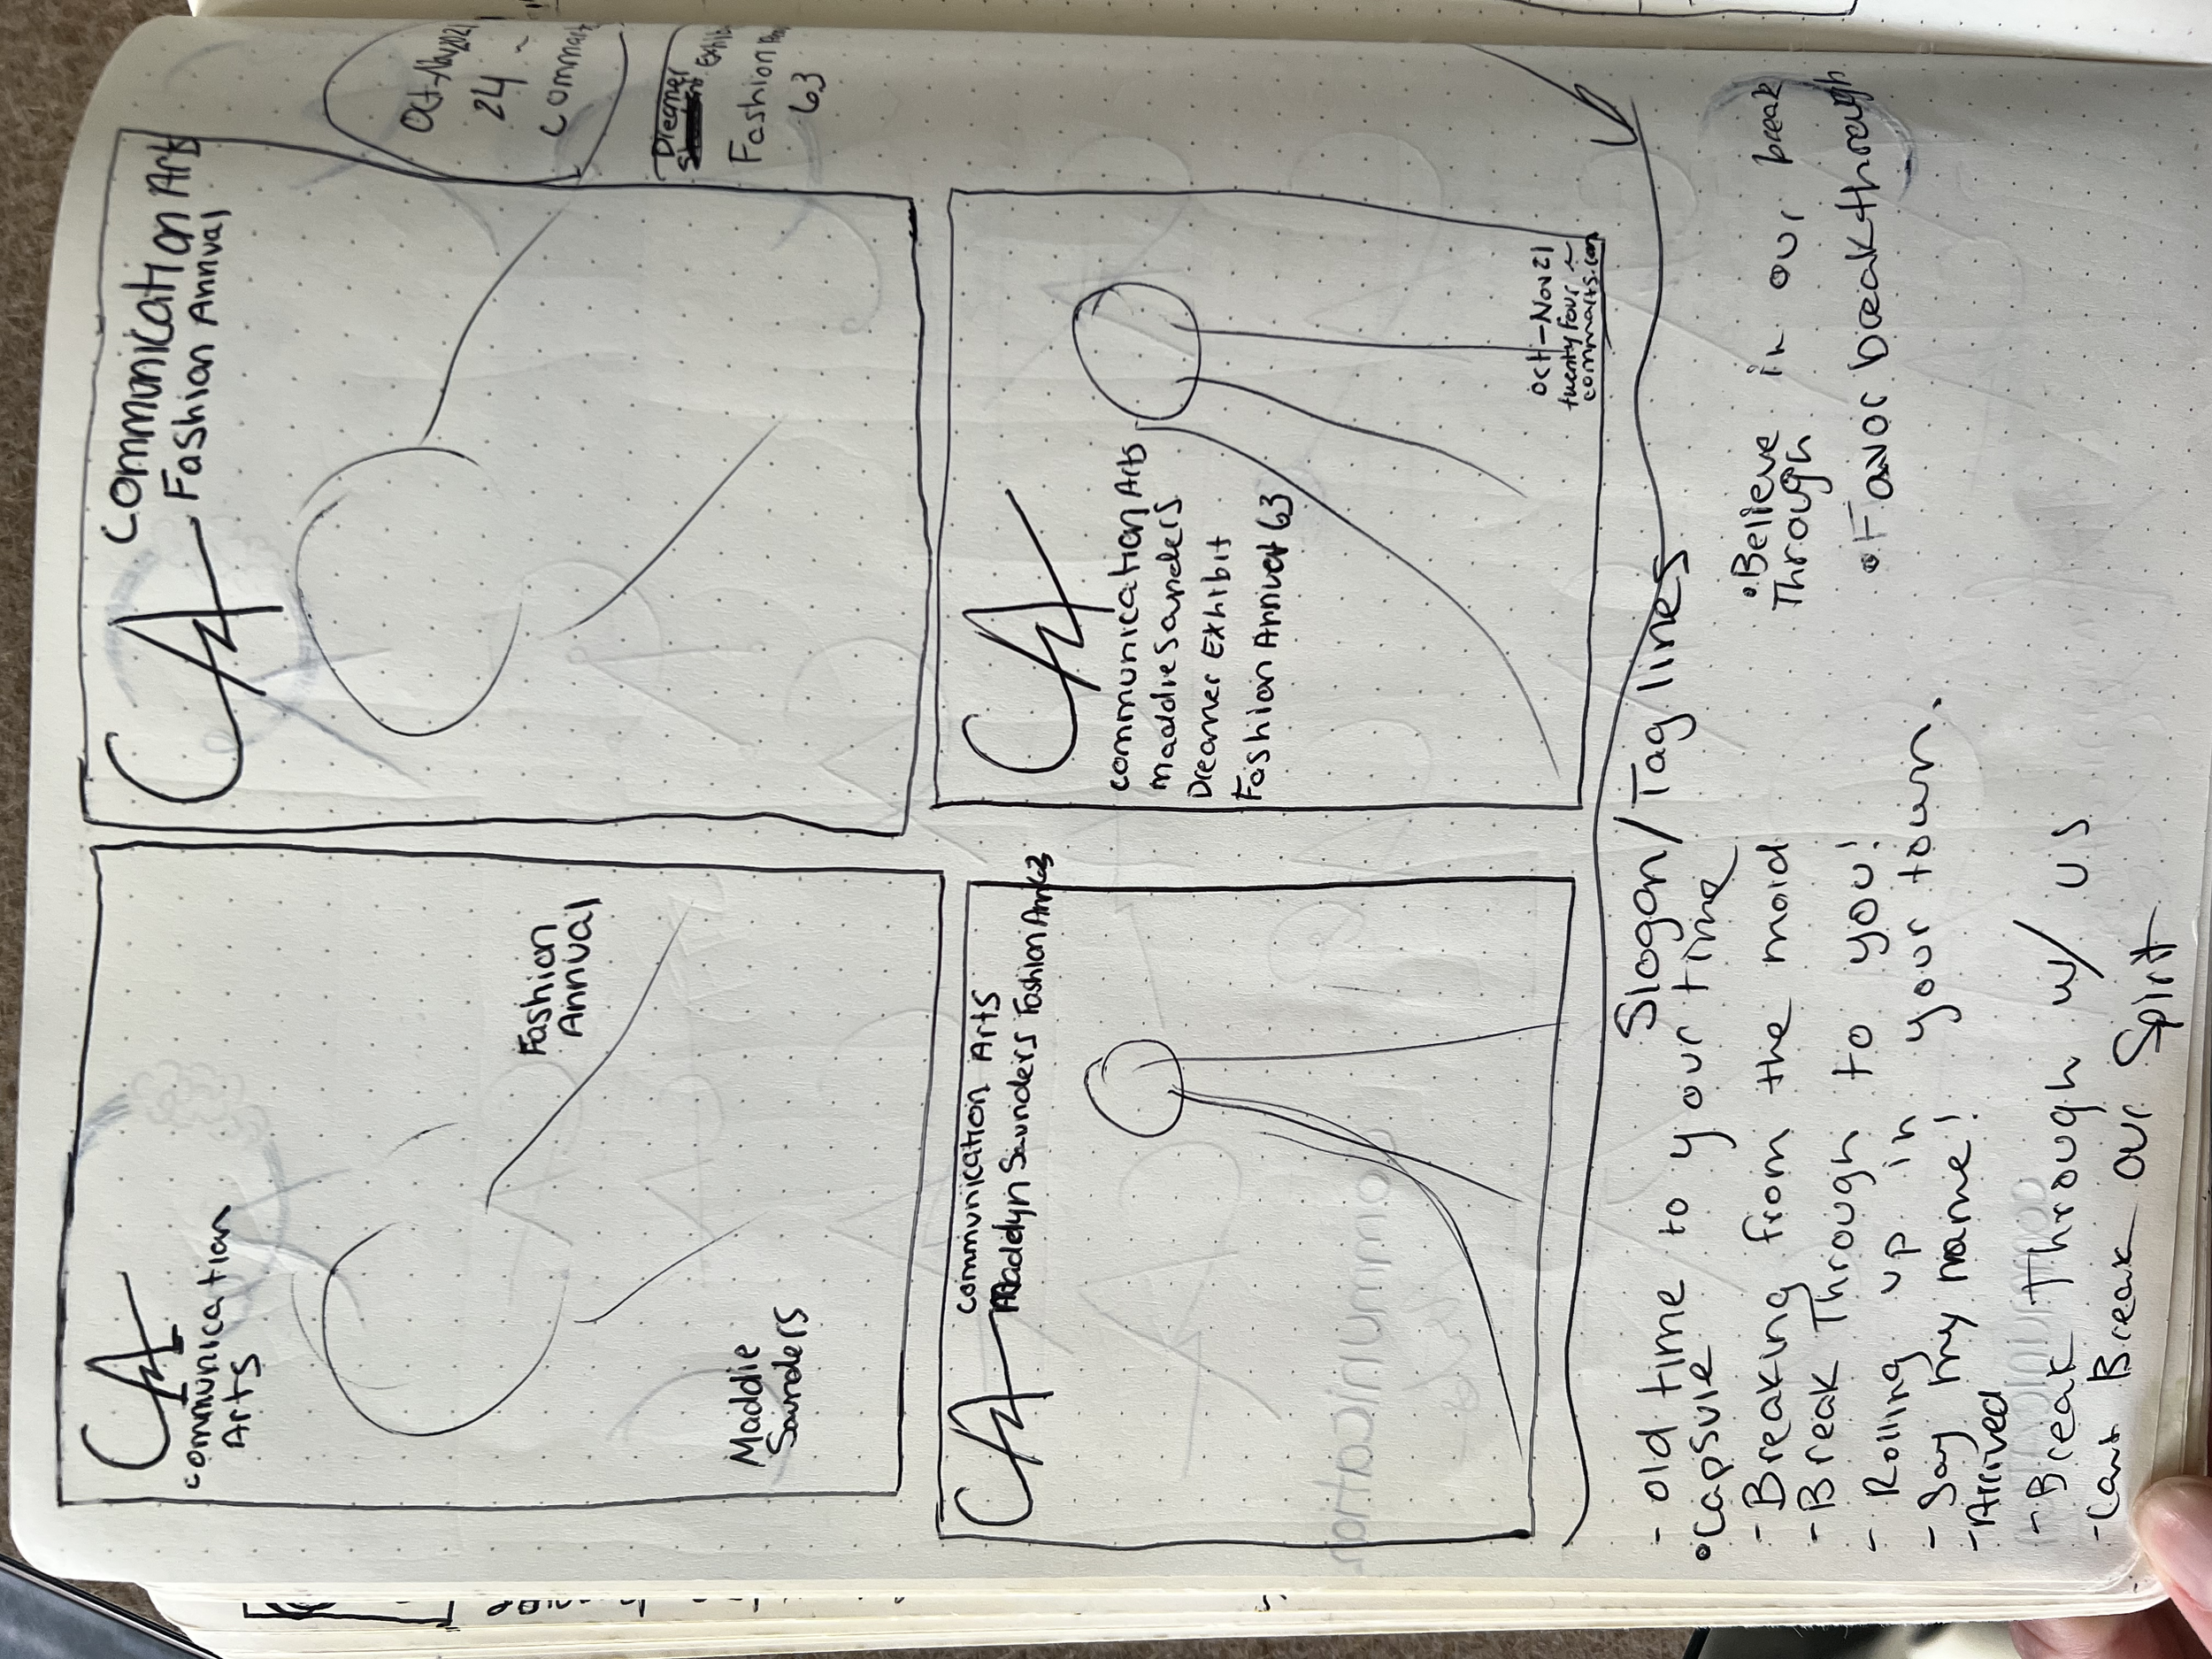 CA
Communication
Arts
Fashion
Annual
Maddie
Saunders
CA
Communication Arts
Fashion Annual
Oct-Nov 2021
24 ~
Commarts
Dreamer Exhib
Fashion
63
CA
Communication Arts
Madelyn Saunders Fashion Ann 63
CA
Communication Arts
Maddie Sanders
Dreamer Exhibit
Fashion Annual 63
Oct-Nov 21
twenty four ~
commarts.com
Slogan/Tag lines
- old time to your time
• Capsule
- Breaking from the mold
- Break Through to you!
- Rolling up in your town.
- Say my name!
- Arrived
- Break through w/ us
- Cant Break our Spirit
• Believe in our break
Through
• Favor breakthrough